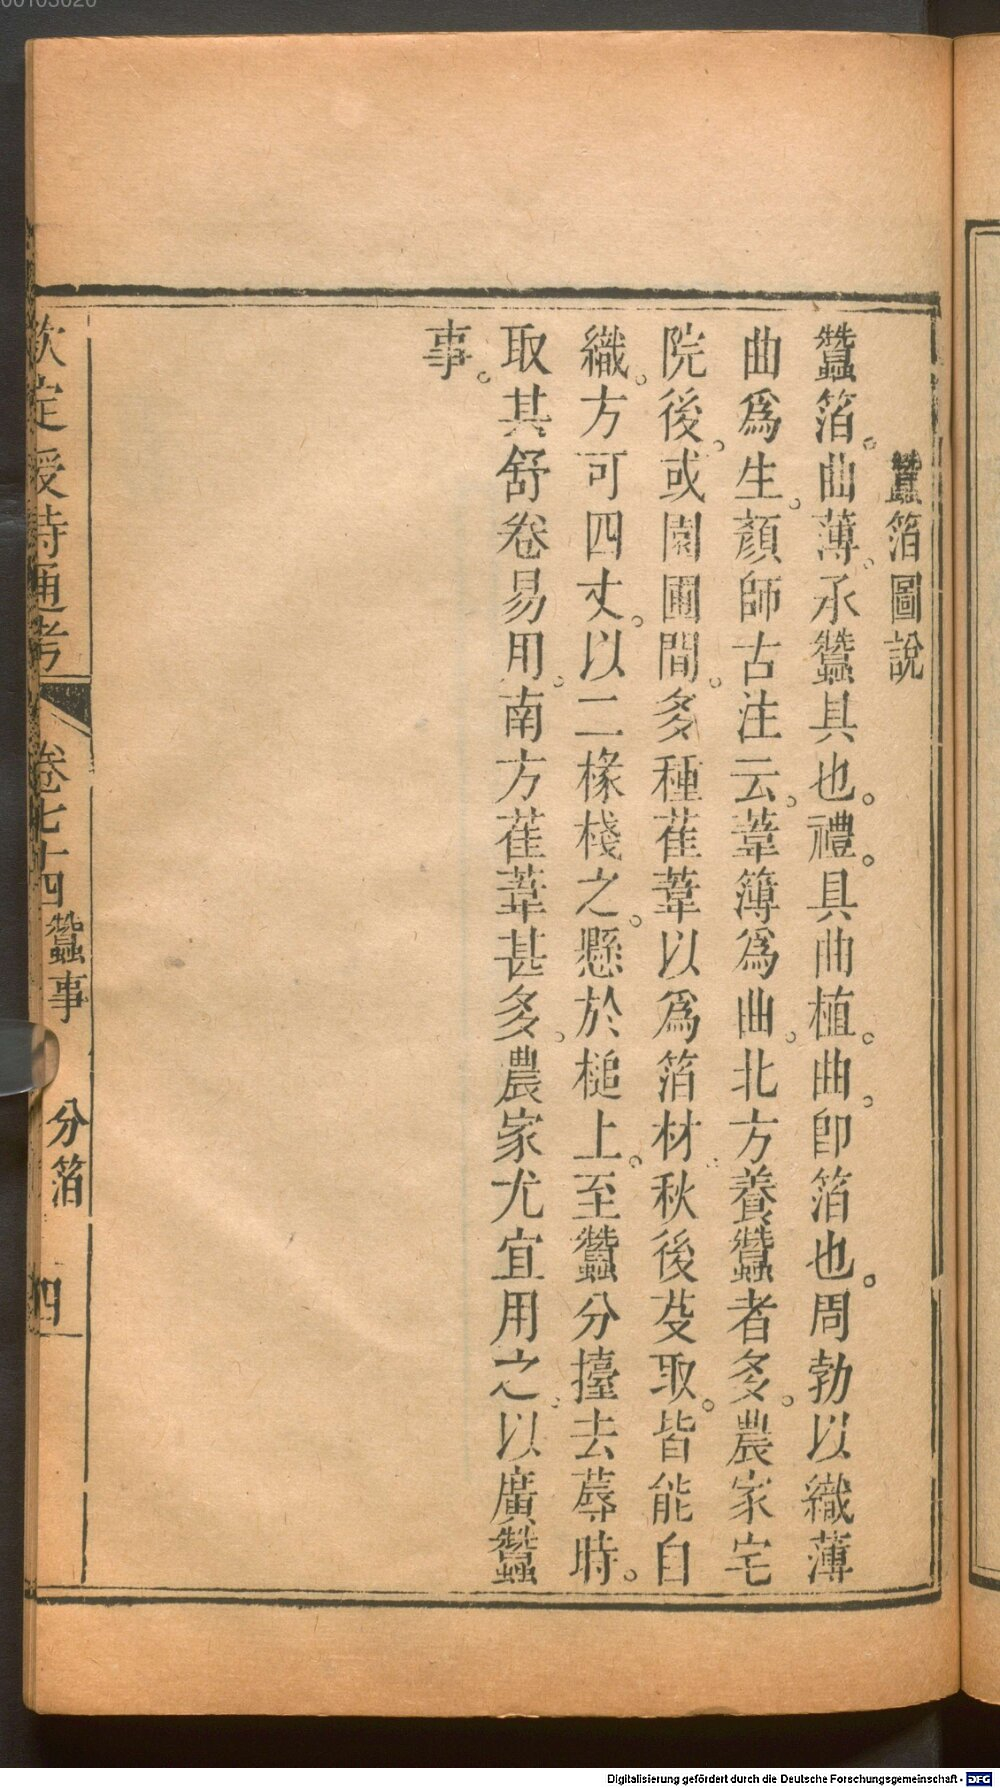 蠶箔圖說
蠶箔。曲薄。承蠶具也。禮。具曲植。曲。卽箔也。周勃以織薄
曲爲生。顏師古注云。葦簿爲曲。北方養蠶者多。農家宅
院後。或園圃間。多種萑葦以爲箔材。秋後芟取。皆能自
織。方可四丈。以二椽棧之。懸於槌上。至蠶分擡去蓐時。
取其舒卷易用。南方萑葦甚多。農家尤宜用之。以廣蠶
事。
欽定授時通考
卷七十四
蠶事
分箔
四
Digitalisierung gefördert durch die Deutsche Forschungsgemeinschaft - DFG